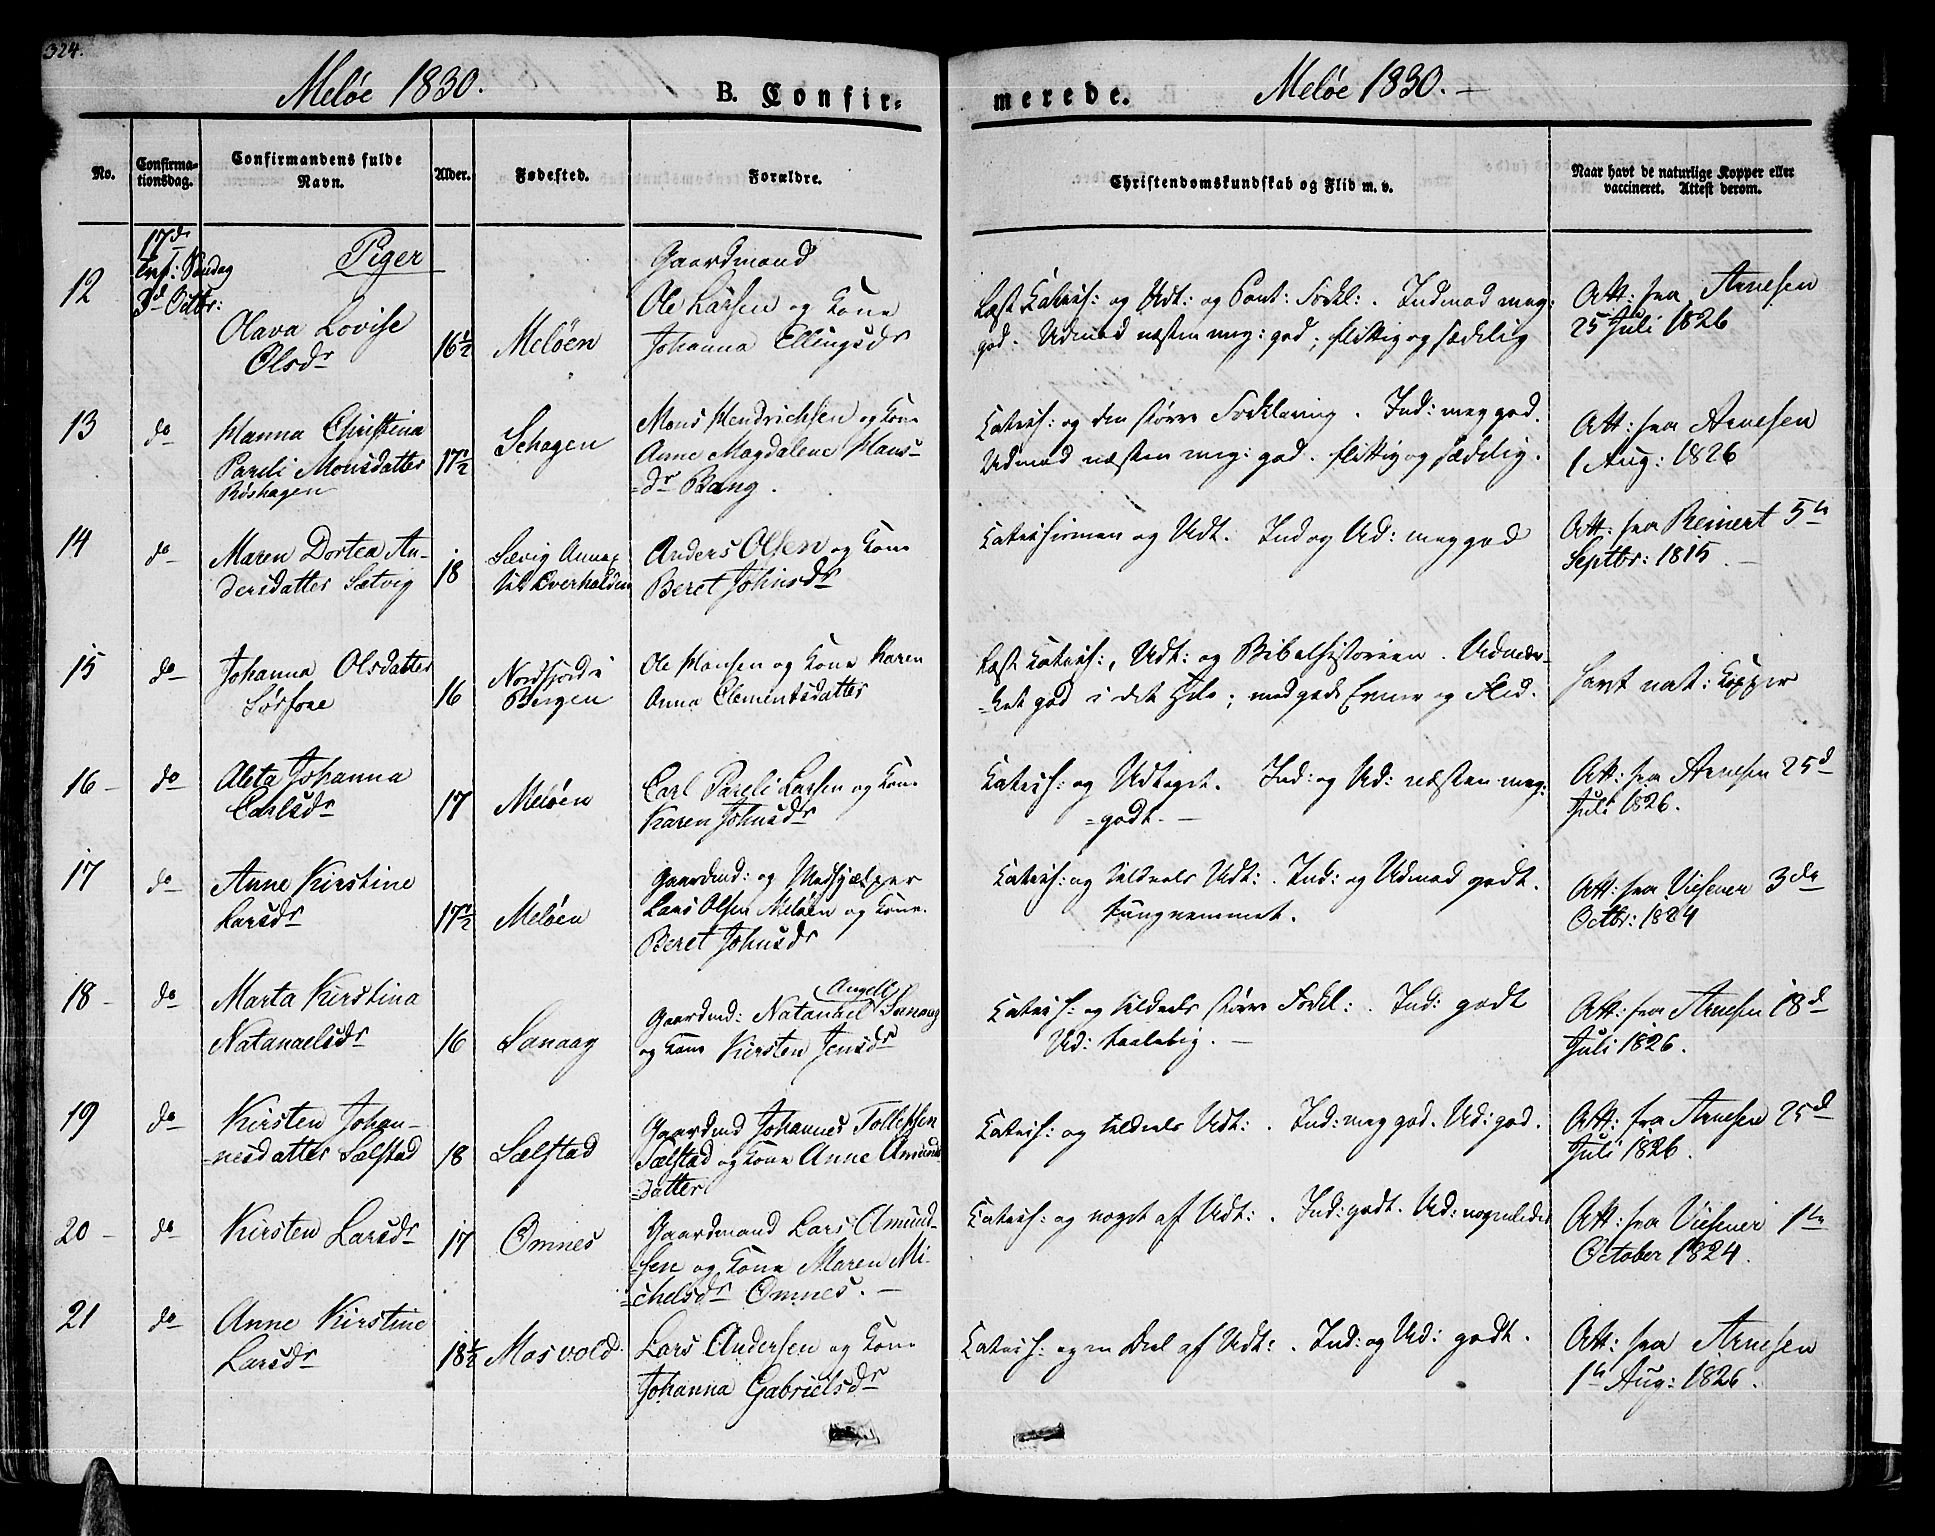 324.
Meløe 1830.
B. Confir-
merede.
Meløe 1830. -
No.
Confirma-
tionsdag.
Confirmandens fulde
Navn.
Alder.
Fødested.
Forældre.
Christendomskundskab og Flid m. v.
Naar havt de naturlige Kopper eller
vaccineret. Attest derom.
17de
Søndag
3d Octbr:
Piger
12
Olava Lovise
Olsdr
16½
Meløen
Gaardmand
Ole Larsen og Kone
Johanna Ellingsdr
Læst Katech: og Udt: og Pont: Forkl: . Indmad meg:
god. Udmad næsten meg: god; flittig og sædelig
Att: fra Arnesen
25 Juli 1826
13
do
Hanna Christina
Pareli Monsdatter
Røshagen
17½
Schagen
Mons Hendrichsen og Kone
Anne Magdalene Hans-
=dr Bang.
Katech: og den større Forklaring. Ind: meg god.
Udmad næsten meg: god. flittig og sædelig.
Att: fra Arnesen
1 Aug: 1826
14
do
Maren Dortea An-
dersdatter Sætvig
18
Sævig Annex
til Overhalden
Anders Olsen og Kone
Beret Johnsdr
Katechismen og Udt. Ind og Ud: meg god
Att: fra Reinert 5te
Septbr: 1815
15
do
Johanna Olsdatter
Sørfore
16
Nordfjord i
Bergen
Ole Hansen og Kone Karen
Anna Clementsdatter
Læst Katech:, Udt: og Bibelhistorien. Udmær-
=ket god i det Hele; med gode Evner og Flid.
havt nat: Kopper
16 -
do
Aleta Johanna
Carlsdr
17
Meløen
Carl Pareli Larsen og Kone
Karen Johnsdr
Katech: og Udtoget. Ind: og Ud: næsten meg:
=godt. -
Att: fra Arnesen 25d
Juli 1826.
17
do
Anne Kirstine
Larsdr
17½
Meløen
Gaardmd: og Medhjælper
Lars Olsen Meløen og Kone
Beret Johnsdr
Katech: og tildeels Udt: . Ind: og Udmad godt.
tungnemmet.
Att: fra Viesener 3de
Octbr: 1824
18 -
do
Marta Kirstina
Natanaelsdr
16
Sanaag
Angell
Gaardmd: Natanael Sanaag
og Kone Kirsten Jensdr
Katech: og tildeels større Forkl: . Ind: godt
Ud: taalelig. -
Att: fra Arnesen 18d
Juli 1826.
19
do
Kirsten Johan-
=nesdatter Sælstad
18
Sælstad
Gaardmd Johannes Tollefsen
Sælstad og Kone Anne Amunds
=datter
Katech: og tildeels Udt: . Ind: meg god. Ud: god.
Att: fra Arnesen 25d
Juli 1826.
20 -
do
Kirsten Larsdr
17
Omnes
Gaardmand Lars Amund-
=sen og Kone Maren Mi-
=chelsdr Omnes. -
Katech: og noget af Udt: . Ind: godt. Ud: nogenledes
Att: fra Viesener 1te
October 1824.
21
do
Anne Kirstine
Larsdr
18½
Mosvold
Lars Andersen og Kone
Johanna Gabrielsdr
Katech: og en Deel af Udt: . Ind: og Ud: godt.
Att: fra Arnesen
1te Aug: 1826.